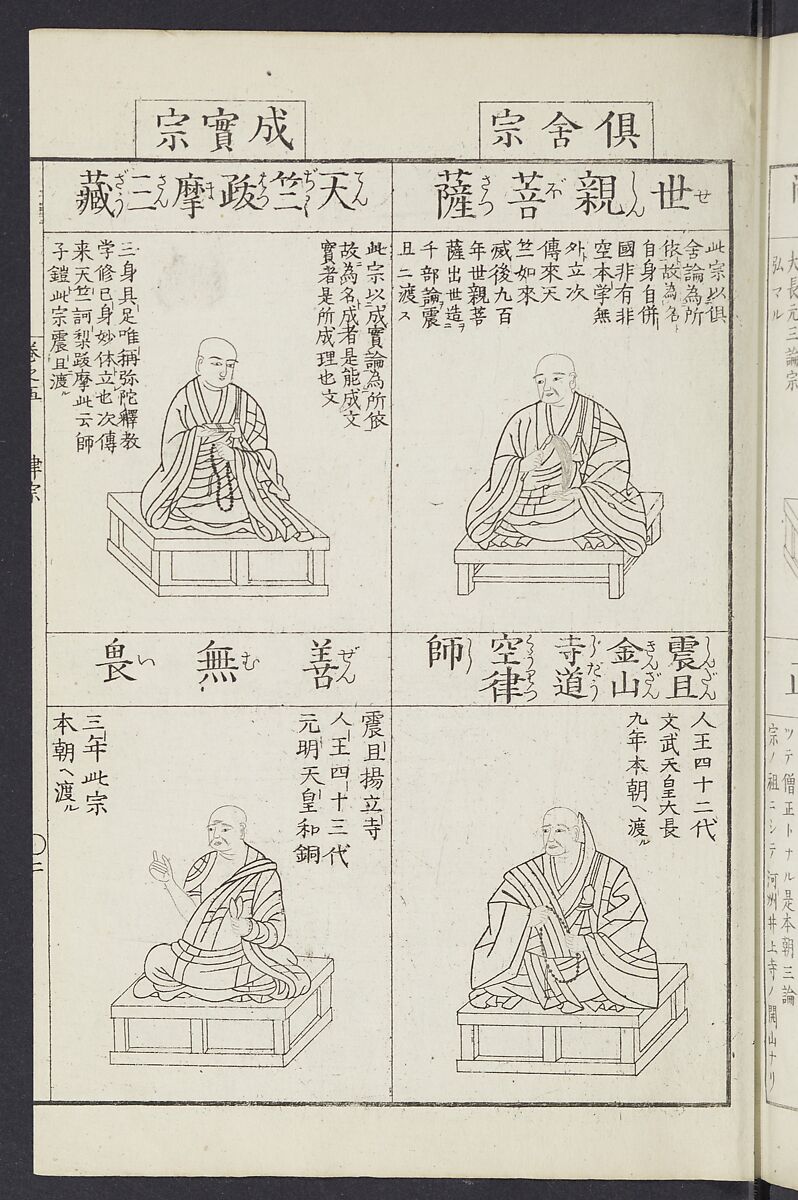 俱舍宗
世親菩薩
せしんぼさつ
此宗以俱
舍論為所
依故為名
自身自併
國非有非
空本学無
外立次
傳來天
竺如來
滅後九百
年世親菩
薩出世造ヲ
千部論震ニ
旦二渡ス
成實宗
天竺䟦摩三藏
てんぢくばつまさんざう
此宗以成實論為所依
故為名成者是能成文
實者是所成理也文
三身具足唯稱弥陀釋教
学修已身妙体立也次傳
来天竺訶梨䟦摩此云師
子鎧此宗震旦渡ル
震旦金山寺道空律師
しんだんきんざんじだうくうりつし
人王四十二代
文武天皇大長
九年本朝ヘ渡ル
善無畏
ぜんむい
震旦揚立寺
人王四十三代
元明天皇和銅
三年此宗
本朝ヘ渡ル
卷之五
律宗
〇二
大長元三論宗
弘マル
正
ツテ僧正トナル是本朝三論
宗ノ祖ニシテ河州井上寺ノ開山ナリ